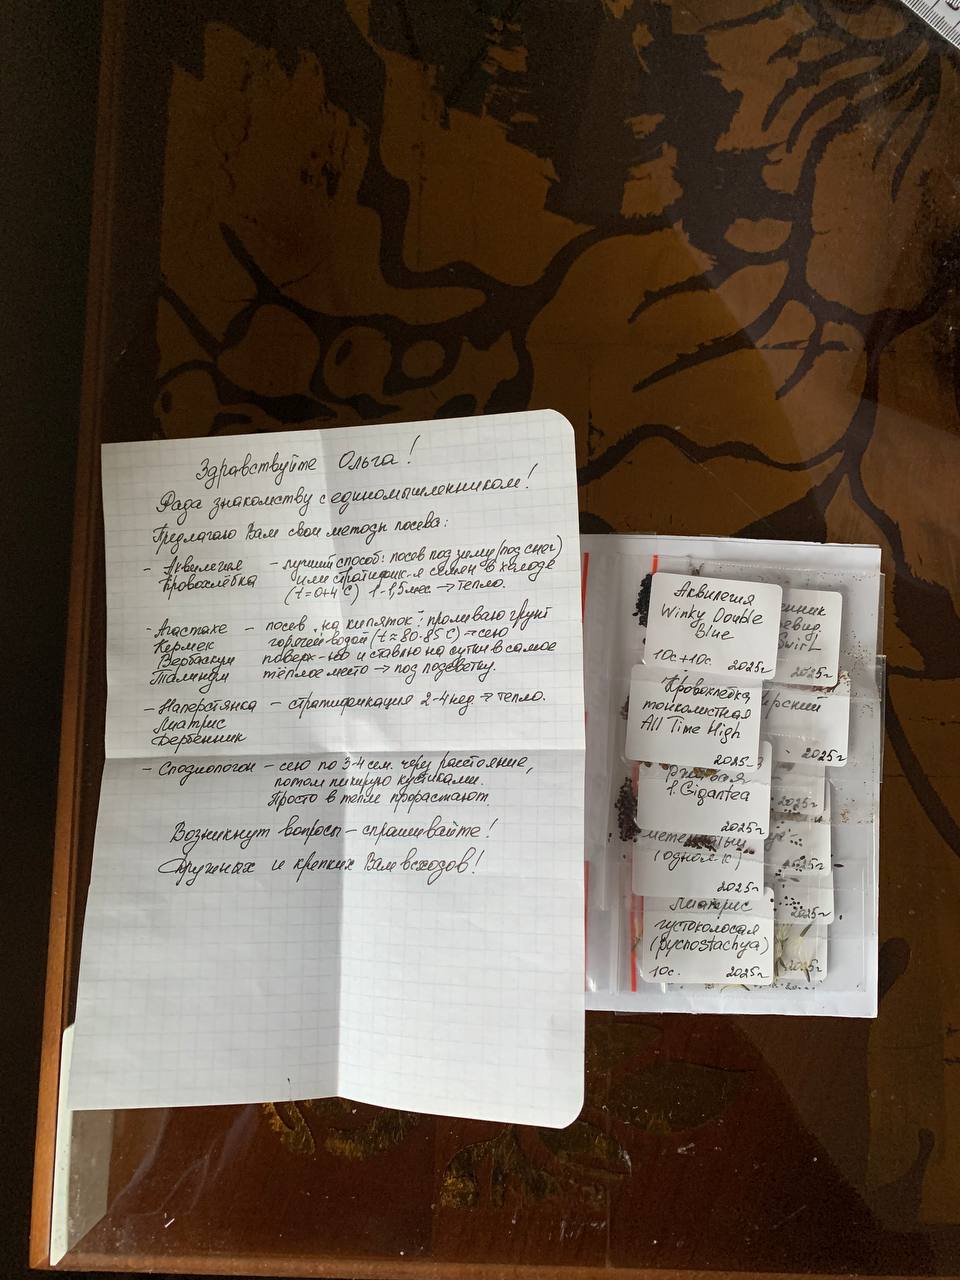 Здравствуйте Ольга!
Рада знакомству с единомышленником!
Предлагаю Вам свои методы посева:
- Аквилегия - лучший способ: посев под зиму (под снег)
Кровохлёбка или стратифик-я семян в холоде
(t=0+4°C) 1-1,5 мес → тепло.
- Агастахе - посев "на кипяток": проливаю грунт
Кермек горячей водой (t≈80-85°C) → сею
Вербаскум поверх-но и ставлю на сутки в самое
Талинум теплое место → под подсветку.
- Наперстянка - стратификация 2-4 нед. → тепло.
Лиатрис
Дербенник
- Сподиопогон - сею по 3-4 сем. через расстояние,
потом пикирую кустиками.
Просто в тепле прорастают.
Возникнут вопросы - спрашивайте!
Дружных и крепких Вам всходов!
Аквилегия
Winky Double
Blue
10с+10с. 2025г
Кровохлебка
тонколистная
All Time High
2025г
f. Gigantea
2025г
метельчатый
(однолк)
2025г
Лиатрис
густоколосая
(pycnostachya)
10с. 2025г
енник
евид.
Swirl
2025г
ирский
2025г
2025г
2025г
2025г
2025г